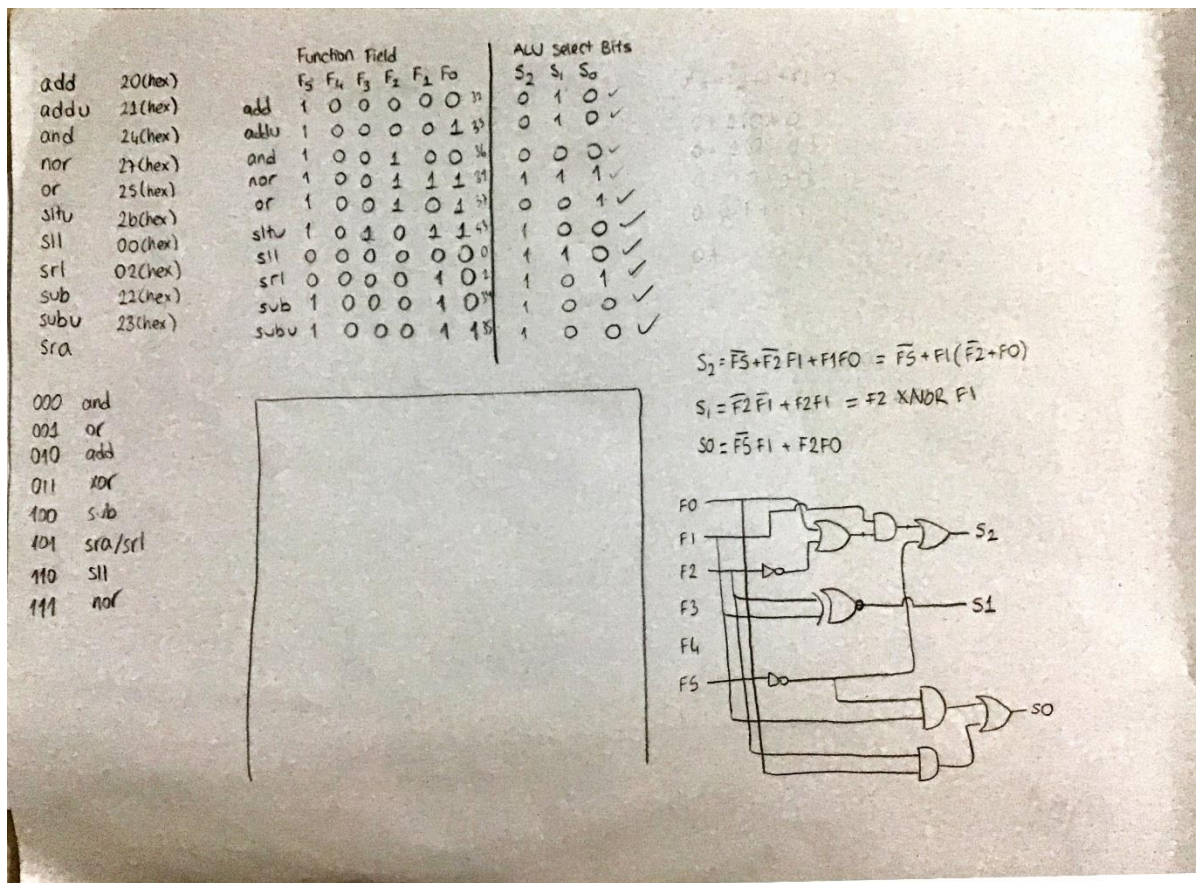 add 20(hex)
addu 21(hex)
and 24(hex)
nor 27(hex)
or 25(hex)
sltu 2b(hex)
sll 00(hex)
srl 02(hex)
sub 22(hex)
subu 23(hex)
sra
000 and
001 or
010 add
011 xor
100 sub
101 sra/srl
110 sll
111 nor
Function Field ALU Select Bits
F5 F4 F3 F2 F1 F0 S2 S1 S0
add 1 0 0 0 0 0 32 0 1 0 ✓
addu 1 0 0 0 0 1 33 0 1 0 ✓
and 1 0 0 1 0 0 36 0 0 0 ✓
nor 1 0 0 1 1 1 39 1 1 1 ✓
or 1 0 0 1 0 1 37 0 0 1 ✓
sltu 1 0 1 0 1 1 43 1 0 0 ✓
sll 0 0 0 0 0 0 0 1 1 0 ✓
srl 0 0 0 0 1 0 2 1 0 1 ✓
sub 1 0 0 0 1 0 34 1 0 0 ✓
subu 1 0 0 0 1 1 35 1 0 0 ✓
S2 = F̅5̅ + F̅2̅ F1 + F1F0 = F̅5̅ + F1(F̅2̅ + F0)
S1 = F̅2̅ F̅1̅ + F2F1 = F2 XNOR F1
S0 = F̅5̅ F1 + F2F0
F0
F1 S2
F2
F3 S1
F4
F5
S0